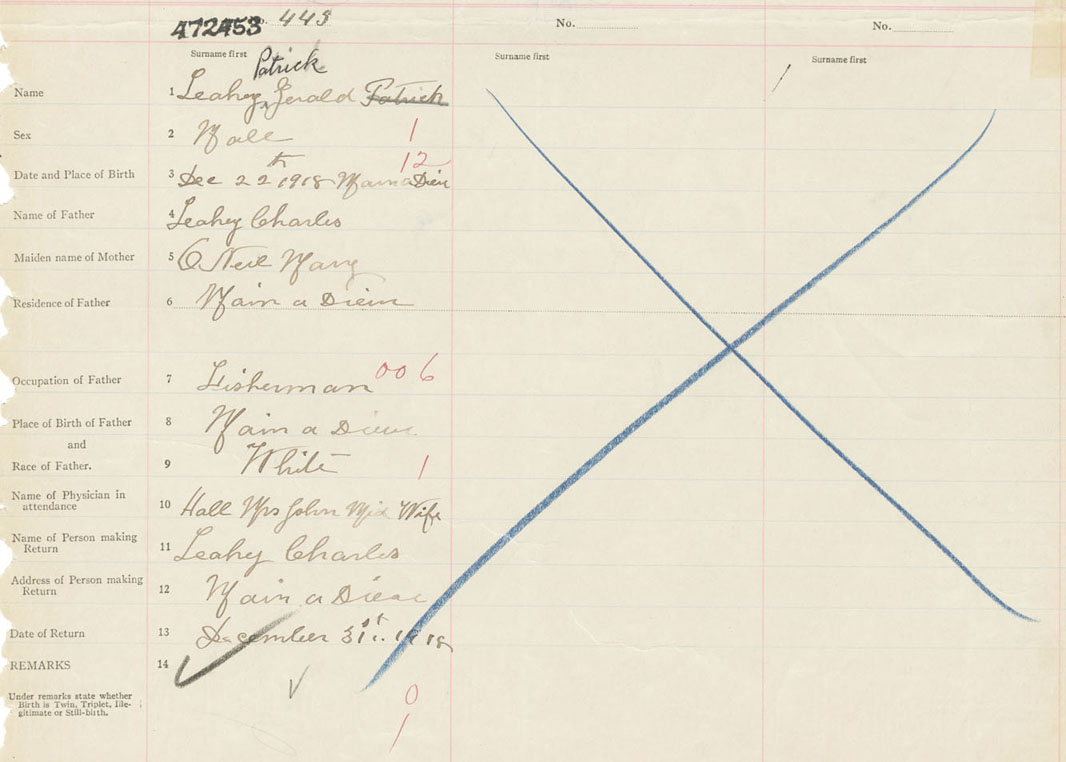 472453 No. 443 No. No.
Surname first Surname first Surname first
Patrick
Name 1 Leahey Gerald Patrick
Sex 2 Male 1
12
Date and Place of Birth 3 Dec 22th 1918 Main a Dieu
Name of Father 4 Leahey Charles
Maiden name of Mother 5 O Neil Mary
Residence of Father 6 Main a Dieu
Occupation of Father 7 Fisherman 006
Place of Birth of Father 8 Main a Dieu
and
Race of Father. 9 White 1
Name of Physician in
attendance 10 Hall Mrs John Mid Wife
Name of Person making
Return 11 Leahy Charles
Address of Person making
Return 12 Main a Dieu
Date of Return 13 December 31st. 1918
REMARKS 14
Under remarks state whether
Birth is Twin, Triplet, Ille-
gitimate or Still-birth.
0
1